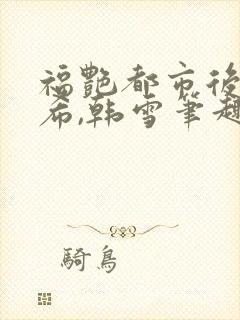 福艷都市後
希,韩雪筆趣
騎鳥